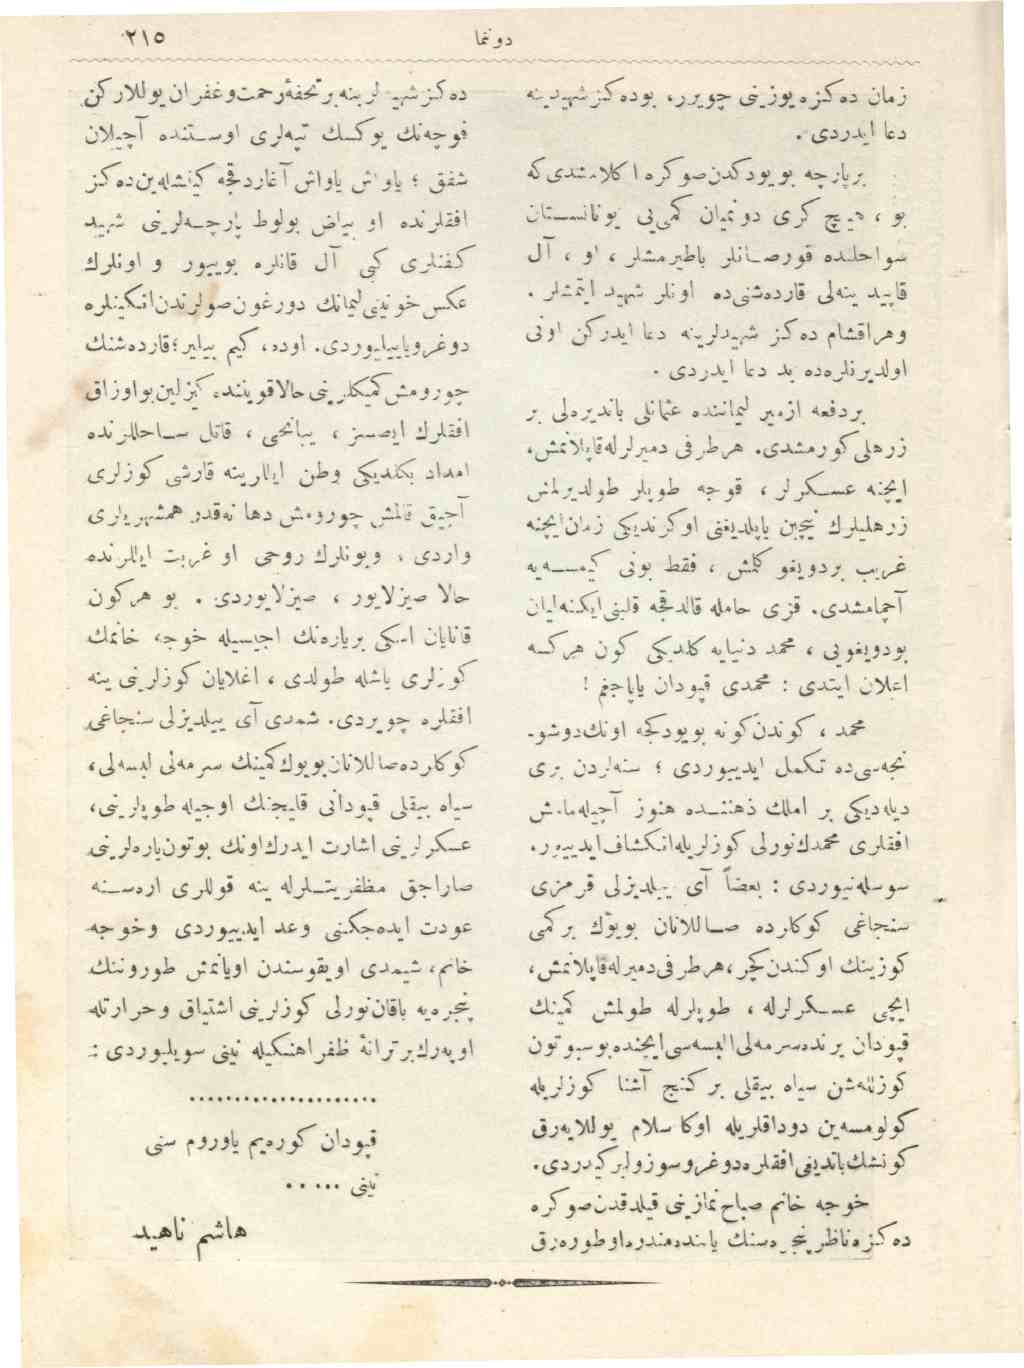 دوننما
٢١٥
زمان ده‌كزه يوزينى چويرر، بوده‌كز شهيدينه
دعا ايدردى.
برپارچه بويودكدن صوكره اكلامشدى كه
بو ، هيچ كرى دونميان كمى‌يى يونانستان
سواحلنده قورصانلر باطيرمشلر ، او ، آل
قاپيد ينه‌لى قارده‌شنى‌ده اونلر شهيد ايتمشلر .
وهراقشام ده‌كز شهيدلرينه دعا ايدركن اونى
اولديرنلره‌ده بد دعا ايدردى .
بردفعه ازمير ليماننده عثمانلى بانديره‌لى بر
زرهلى كورمشدى. هرطرفى دميرلرله قاپلانمش،
ايچنه عسكرلر ، قوجه طوپلر طولديرلمش
زرهليلرك نيچين ياپلديغنى اوكرنديكى زمان ايچنه
غريب بردويغو كلمش ، فقط بونى كيمسه‌يه
آچمامشدى. قزى حامله قالدقجه قلبنى ايكنه‌ليان
بودويغويى ، محمد دنيايه كلديكى كون هركسه
اعلان ايتدى : محمدى قپودان ياپاجغم !
محمد ، كوندن كونه بويودكجه اونك دوشو-
نجه‌سى‌ده تكمل ايدييوردى ؛ سنه‌لردن برى
ديله‌ديكى بر املك ذهننده هنوز آچيله‌مامش
افقلرى محمدك نورلى كوزلريله انكشاف ايدييور.
سوسله‌نيوردى : بعضاً آى ييلديزلى قرمزى
سنجاغى كوكلرده صاللانان بويوك بركمى
كوزينك اوكندن كچر، هرطرفى دميرله قاپلانمش،
ايچى عسكرلرله ، طوپلرله طولمش كمينك
قپودان يرنده سرمه‌لى البسه‌سى ايچنده بوسبوتون
كوزللشن سياه بيقلى بر كنج آشنا كوزلريله
كولومسه‌ين دوداقلريله اوكا سلام يوللايه‌رق
كونشك باتديغى افقلره دوغرو سوزولير كيدردى.
خوجه خانم صباح نمازينى قيلدقدن صوكره
ده‌كزه ناظر پنجره‌سنك ياننده مندره اوطوره‌رق
ده‌كز شهيدلرينه برتحفهٔ رحمت وغفران يوللاركن
قوجه‌نك يوكسك تپه‌لرى اوستنده آچيلان
شفق ؛ ياواش ياواش آغاردقجه كينشله‌ين ده‌كز
افقلرنده او بياض بولوط پارچه‌لرينى شهيد
كفنلرى كبى آل قانلره بوييور و اونلرك
عكس خونينى ليمانك دورغون صولرندن انكينلره
دوغرو ياييليوردى. اوده، كيم بيلير؛ قارده‌شنك
چورومش كميكلرينى حالا قويننده كيزلين بو اوزاق
افقلرك ايصسز ، يبانجى ، قاتل ساحللرنده
امداد بكلديكى وطن ايللرينه قارشى كوزلرى
آجيق قالمش چورومش دها نه‌قدر همشهريلرى
واردى ، وبونلرك روحى او غربت ايللرنده
حالا صيزلايور ، صيزلايوردى . بو هركون
قانايان اسكى بريارەنك اجيسيله خوجه خانمك
كوزلرى ياشله طولدى ، اغلايان كوزلرينى ينه
افقلره چويردى. شمدى آى ييلديزلى سنجاغى
كوكلرده صاللانان بويوك كمينك سرمه‌لى البسه‌لى،
سياه بيقلى قپودانى قليجنك اوجيله طوپلرينى،
عسكرلرينى اشارت ايدرك اونك بوتون يارەلرينى
صاراجق مظفريتلرله ينه قوللرى اره‌سنه
عودت ايده‌جكنى وعد ايدييوردى وخوجه
خانم، شيمدى اويقوسندن اويانمش طوروننك
پنجره‌يه باقان نورلى كوزلرينى اشتياق وحرارتله
اوپه‌رك برترانهٔ ظفر اهنكيله نينى سويليوردى :
....................
قپودان كوره‌يم ياوروم سنى
نينى .....
هاشم ناهيد